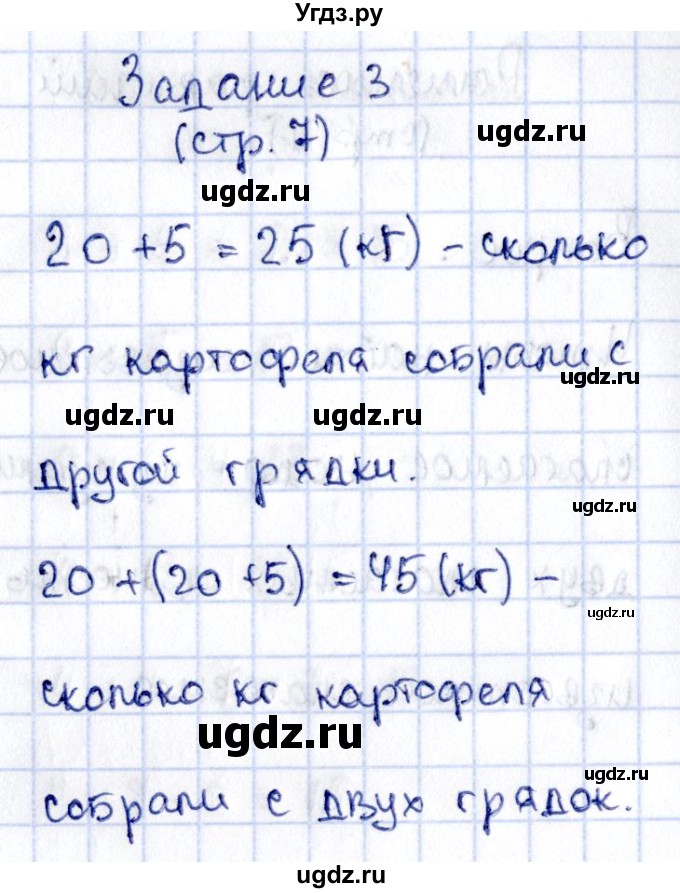 Угдз.ру
Задание 3
(стр. 7)
ugdz.ru
ugdz.ru
20 + 5 = 25 (кг) - сколько
кг картофеля собрали с
ugdz.ru
ugdz.ru
ugdz.ru
другой грядки.
ugdz.ru
20 + (20 + 5) = 45 (кг) -
ugdz.ru
сколько кг картофеля
ugdz.ru
ugdz.ru
собрали с двух грядок.
ugdz.ru